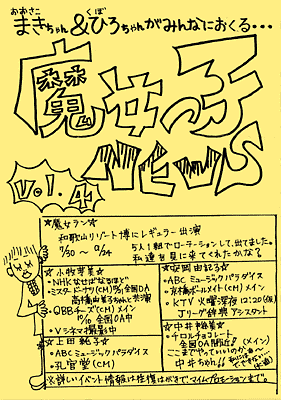 おおさこ くぼ
まきちゃん&ひろちゃんがみんなにおくる・・・
魔女っ子
NEWS
Vol.4
☆魔女ラン☆
和歌山リゾート博にレギュラー出演
7/30〜9/24
5人1組でローテーションして、出てました。
私達を見に来てくれたかな?
☆小牧芽美☆
・NHKなせばなるほど
・ミスタードーナツ(CM)全国OA
高橋由美子ちゃんと共演
・QBBチーズ(CM)メイン
10/10 全国OA中
・Vシネマ撮影中
☆上田純子☆
・ABCミュージックパラダイス
・孔官堂(CM)
☆安岡由紀子☆
・ABCミュージックパラダイス
・京橋ボールメイト(CM)メイン
・KTV火曜深夜12:20(仮)
Jリーグ辞典アシスタント
☆中井裕美☆
・チロルチョコレート
全国OA間近!!(メイン)
ここまでやっていいのか
中井ちゃん!!
※詳しいイベント情報は往復はがきで、マイムプロモーションまで。